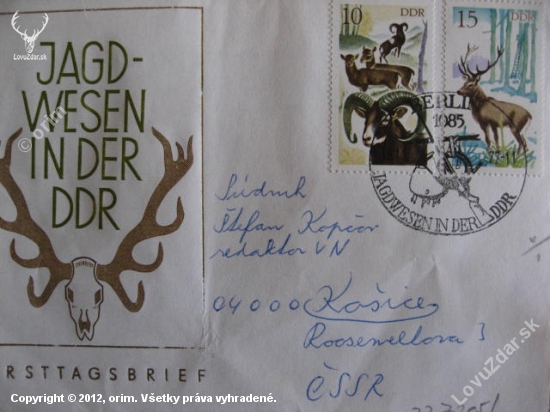 LovuZdar.sk
JAGD-
WESEN
IN DER
DDR
10 DDR
15 DDR
BERLIN
1085
JAGDWESEN IN DER DDR
Súdruh
Štefan Kopčov
redaktor VN
04000 Košice
Roosewellova 3
ČSSR
RSTTAGSBRIEF
© orim
LovuZdar.sk
Copyright © 2012, orim. Všetky práva vyhradené.